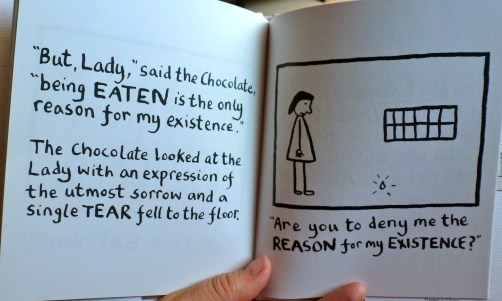 "But, Lady," said the Chocolate,
"being EATEN is the only
reason for my existence."
The Chocolate looked at the
Lady with an expression of
the utmost sorrow and a
single TEAR fell to the floor.
"Are you to deny me the
REASON for my EXISTENCE?"